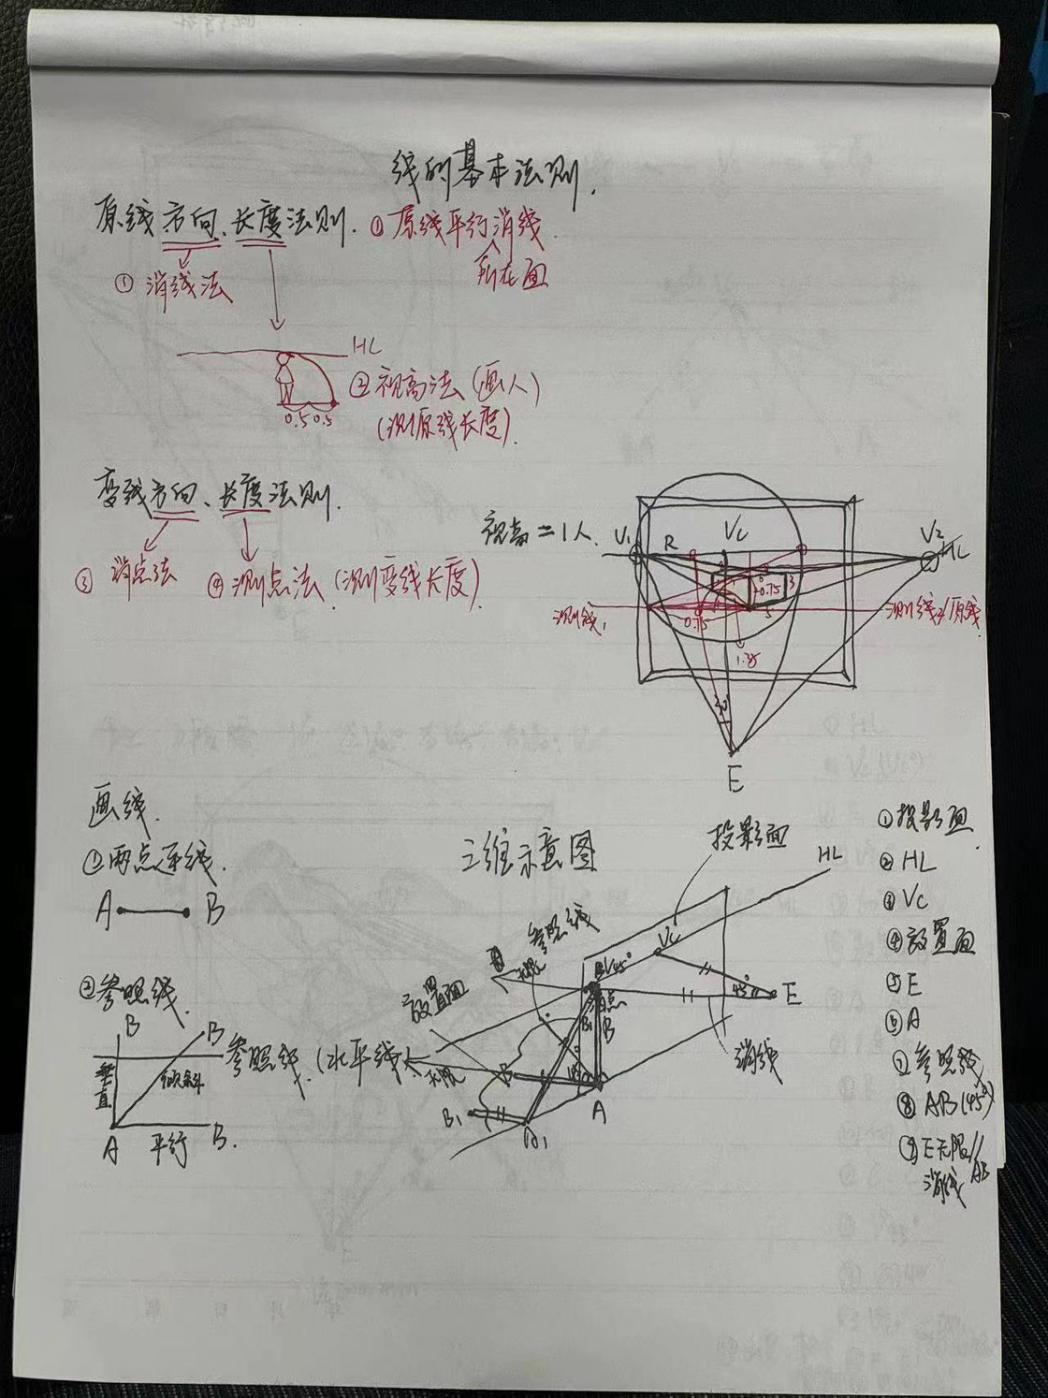 线的基本法则.
原线方向、长度法则. ①原线平行消线.
所在面
①消线法
HL
②视高法(画人)
0.5 0.5
(测原线长度).
变线方向、长度法则.
③消点法 ④测点法(测变线长度)
视高=1人.
V1 R Vc V2 HL
0.75 3
测线1 0.75 5 测线2//原线
1.35
30°
E
画线.
①两点连线.
A B
②参照线.
B B
参照线.(水平线)
垂直 倾斜
A 平行 B.
三维示意图
投影面
HL
参照线
无限
Vc
45°
放置面
消点
45° E
B1 B
消线
无限
B
B1
A1
A
①投影面
②HL
③Vc
④放置面
⑤E
⑥A
⑦参照线
⑧AB(45°)
⑨E无限//AB
消线